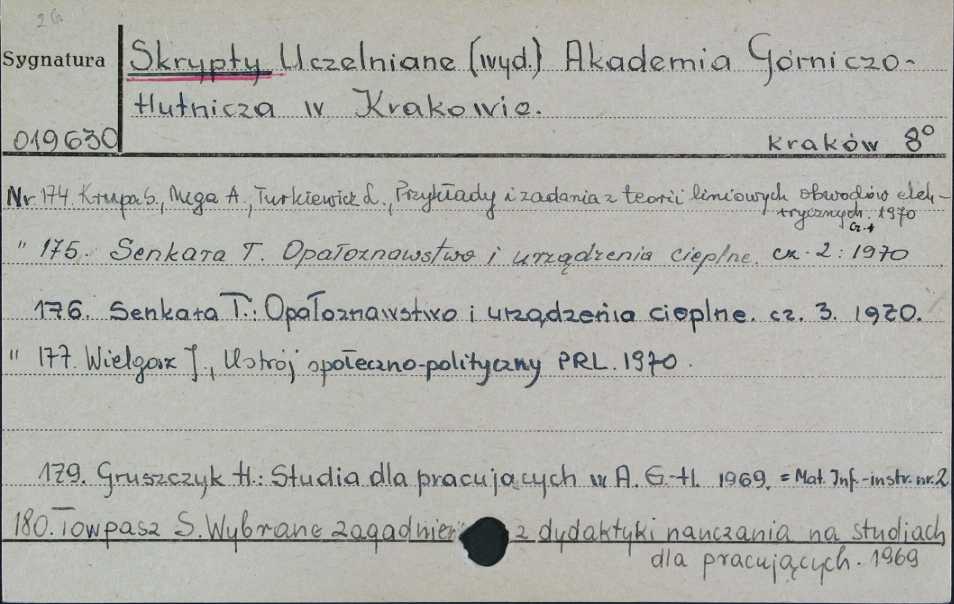 26
Sygnatura
Skrypty Uczelniane (wyd.) Akademia Górniczo-
Hutnicza w Krakowie.
019630
Kraków 8°
Nr 174. Krupa S., Mega A., Turkiewicz L., Przykłady i zadania z teorii liniowych obwodów elek-
trycznych. 1970
Cz. 1
" 175. Senkara T. Opałoznawstwo i urządzenia cieplne. cz. 2: 1970
176. Senkara T.: Opałoznawstwo i urządzenia cieplne. cz. 3. 1970.
" 177. Wielgosz J., Ustrój społeczno-polityczny PRL. 1970.
179. Gruszczyk H.: Studia dla pracujących w A. G-H. 1969. = Mat. Inf.-instr. nr. 2
180. Towpasz S. Wybrane z dydaktyki nauczania na studiach
dla pracujących. 1969